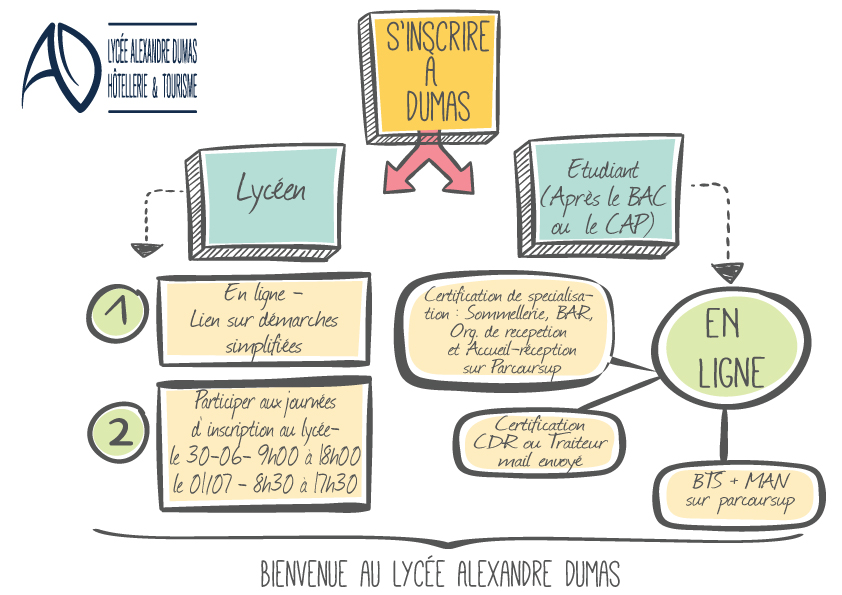 LYCÉE ALEXANDRE DUMAS
HÔTELLERIE & TOURISME
S'INSCRIRE
À
DUMAS
Lycéen
Etudiant
(Après le BAC
ou le CAP)
1
En ligne –
Lien sur démarches
simplifiées
2
Participer aux journées
d'inscription au lycée-
le 30-06- 9h00 à 18h00
le 01/07 - 8h30 à 17h30
Certification de spécialisa-
tion : Sommellerie, BAR,
Org. de recepetion
et Accueil-réception
sur Parcoursup
EN
LIGNE
Certification
CDR ou Traiteur
mail envoyé
BTS + MAN
sur parcoursup
BIENVENUE AU LYCÉE ALEXANDRE DUMAS